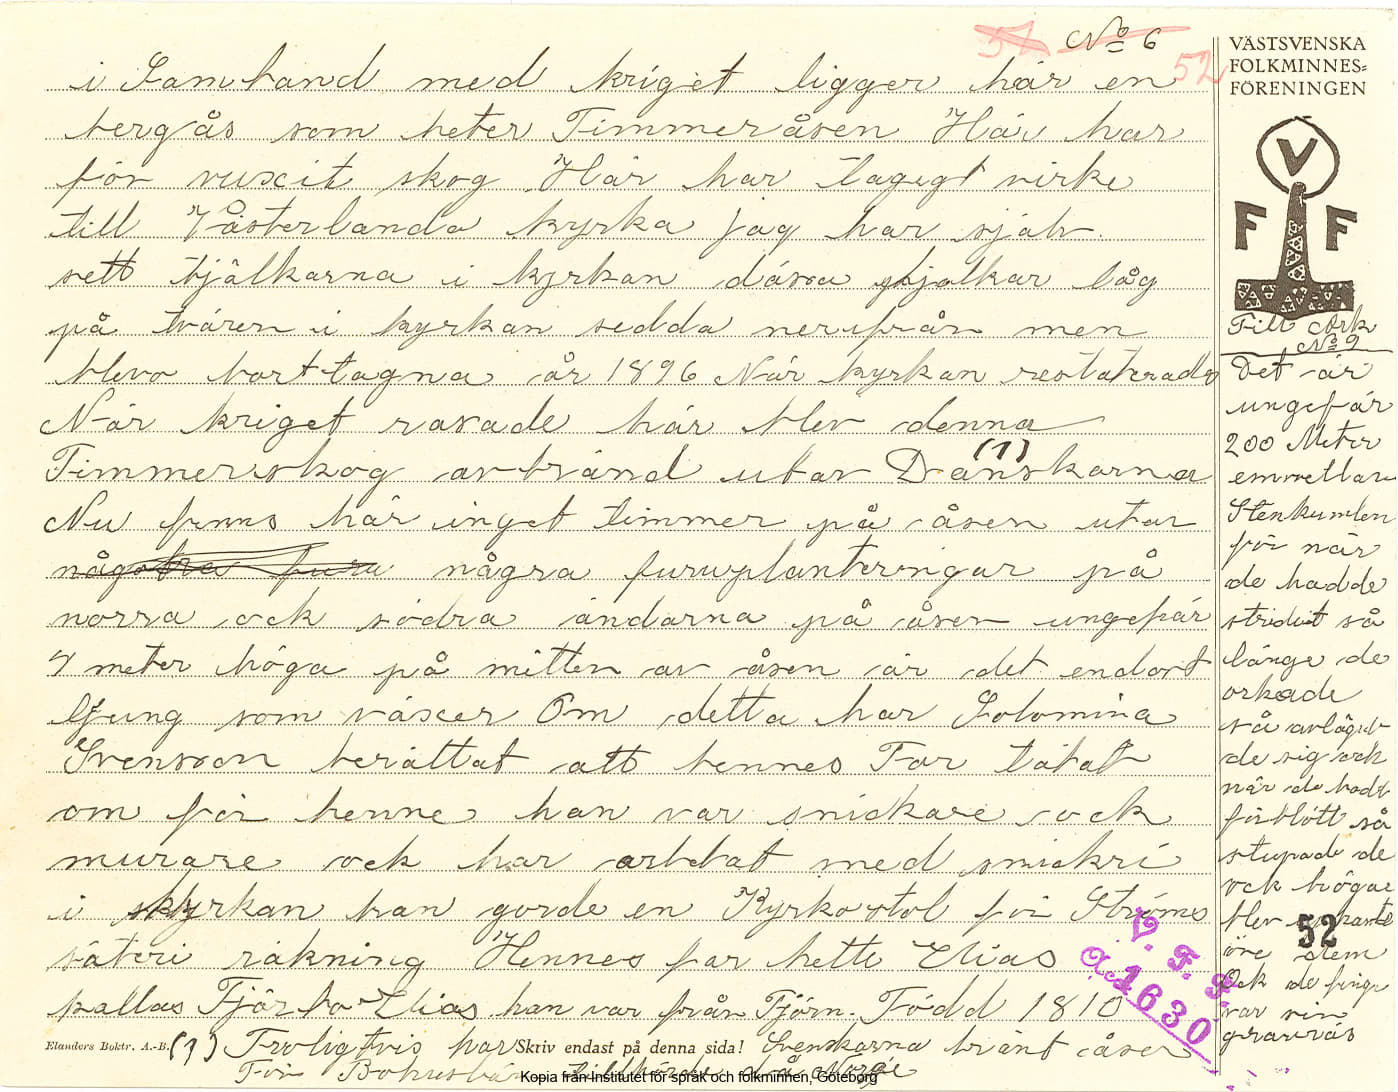 51 No 6
52
i Samband med kriget ligger här en
bergås som heter Timmeråsen Här har
för vuxit skog Här har tagegt virke
till Västerlanda kyrka jag har själv
sett bjälkarna i kyrkan dässa bjalkar låg
på tvären i kyrkan sedda nerifrån men
blevo borttagna år 1896 När kyrkan restaterades
När kriget rasade här blev denna
Timmerskog avbränd utav Danskarna (1)
Nu finns här inget timmer på åsen utav
någotra furu några furuplanteringar på
norra ock södra ändarna på åsen ungefär
7 meter höga på mitten av åsen är det endast
ljung som växer Om detta har Solomina
Svensson berättat att hennes Far talat
om för henne han var snickare ock
murare ock har arbetat med snickri
i kyrkan han gorde en Kyrkostol för Ströms
säteri räkning Hennes far hette Elias
kallas Fjörbo Elias han var från Tjörn. Född 1810
(1) Troligtvis har Svenskarna bränt åsen
För Bohuslän tillhörde då Norge
Elanders Boktr. A.-B.
Skriv endast på denna sida!
VÄSTSVENSKA
FOLKMINNES-
FÖRENINGEN
V
F F
Till Ark
No 9
Det är
ungefär
200 Meter
emmellan
Stenkumlen
för när
de hadde
stridit så
länge de
orkade
så avlägset
de sig ock
når de hade
förblött så
stupade de
ock högar
blev
över dem
Ock de finge
var sin
gravrös
52
V. F. F.
Acc. 1630
Kopia från Institutet för språk och folkminnen, Göteborg